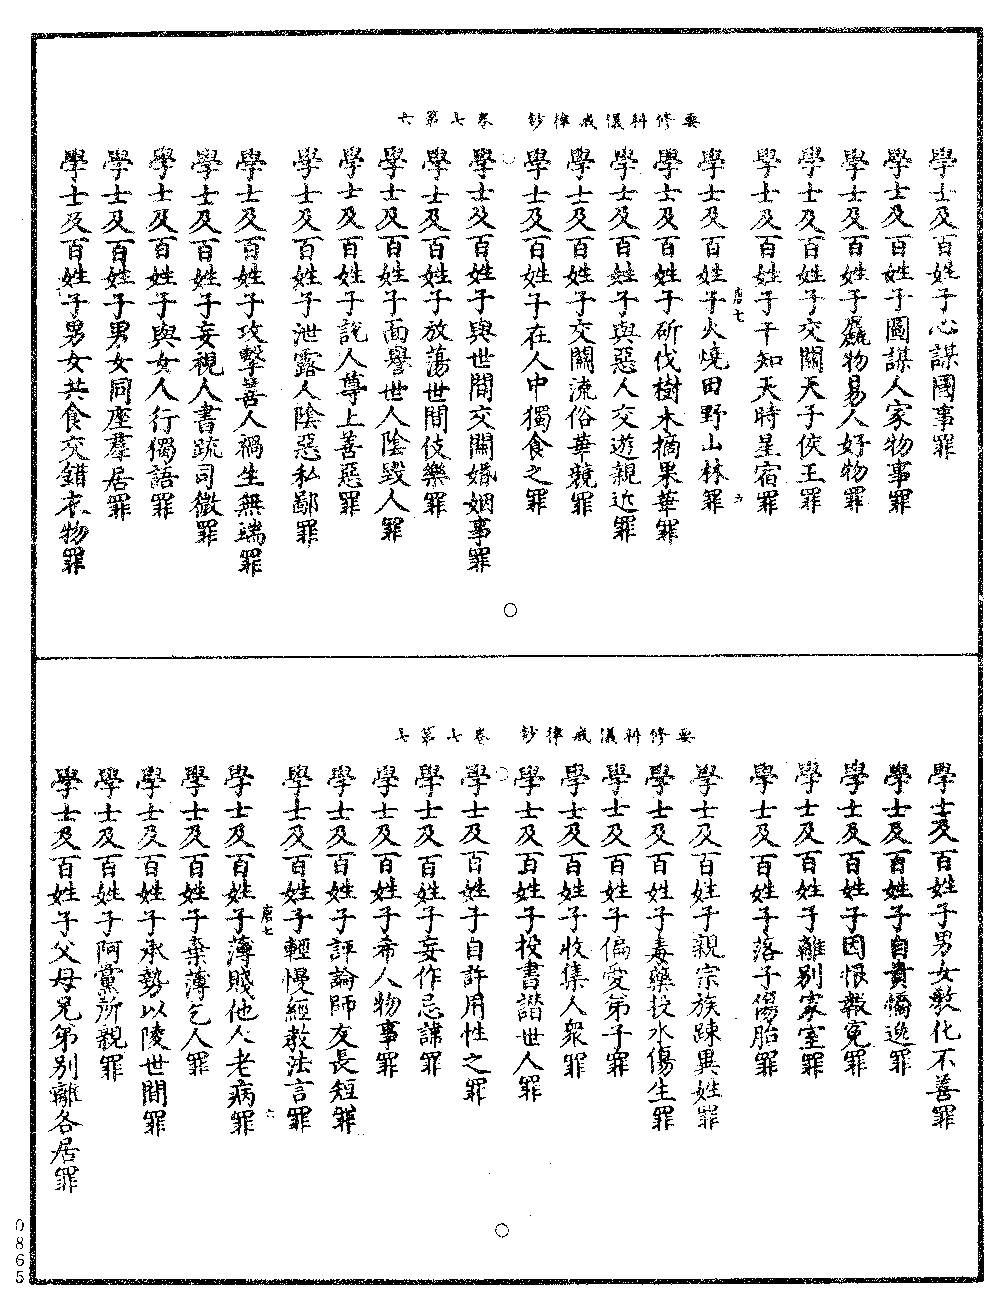 要修科儀戒律鈔　卷七第六
學士及百姓子心謀國事罪
學士及百姓子圖謀人家物事罪
學士及百姓子麤物易人好物罪
學士及百姓子交關天子侯王罪
學士及百姓子干知天時星宿罪
唐七　六
學士及百姓子火燒田野山林罪
學士及百姓子斫伐樹木摘果華罪
學士及百姓子與惡人交遊親近罪
學士及百姓子交關流俗華競罪
學士及百姓子在人中獨食之罪
學士及百姓子與世間交關婚姻事罪
學士及百姓子放蕩世間伎樂罪
學士及百姓子面譽世人陰毀人罪
學士及百姓子說人尊上善惡罪
學士及百姓子泄露人陰惡私鄙罪
學士及百姓子攻擊善人禍生無端罪
學士及百姓子妄視人書疏伺微罪
學士及百姓子與女人行獨語罪
學士及百姓子男女同座羣居罪
學士及百姓子男女共食交錯衣物罪
要修科儀戒律鈔　卷七第七
學士及百姓子男女教化不善罪
學士及百姓子自貴憍逸罪
學士及百姓子因恨報冤罪
學士及百姓子離別家室罪
學士及百姓子落子傷胎罪
學士及百姓子親宗族踈異姓罪
學士及百姓子毒藥投水傷生罪
學士及百姓子偏愛弟子罪
學士及百姓子收集人衆罪
學士及百姓子投書譖世人罪
學士及百姓子自許用性之罪
學士及百姓子妄作忌諱罪
學士及百姓子希人物事罪
學士及百姓子評論師友長短罪
學士及百姓子輕慢經教法言罪
唐七　六
學士及百姓子薄賤他人老病罪
學士及百姓子棄薄乞人罪
學士及百姓子承勢以陵世間罪
學士及百姓子阿黨所親罪
學士及百姓子父母兄弟別離各居罪
0865